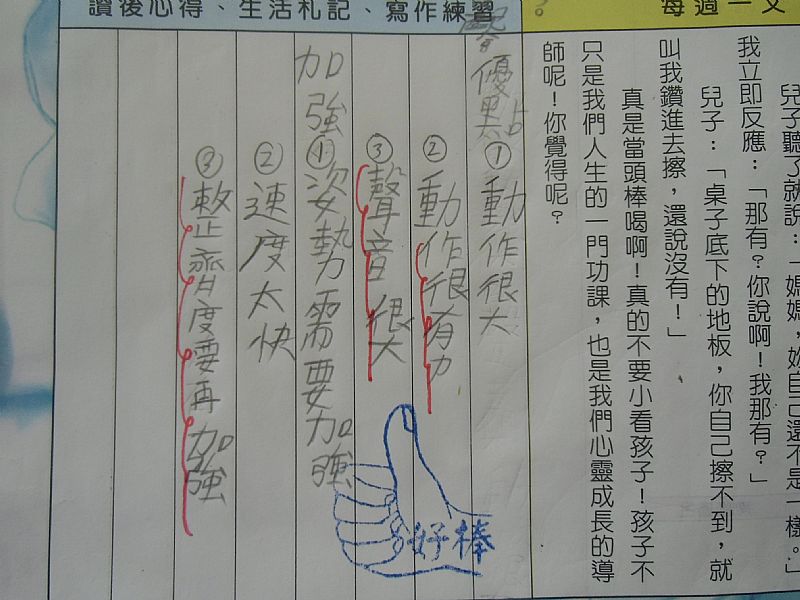 每週一文
兒子聽了就說：「媽媽，妳自己還不是一樣。」
我立即反應：「那有？你說啊！我那有？」
兒子：「桌子底下的地板，你自己擦不到，就
叫我鑽進去擦，還說沒有！」
真是當頭棒喝啊！真的不要小看孩子！孩子不
只是我們人生的一門功課，也是我們心靈成長的導
師呢！你覺得呢？
讀後心得、生活札記、寫作練習
優點①動作很大
②動作很有力
③聲音很大
加強①姿勢需要加強
②速度太快
③整齊度要再加強
好棒